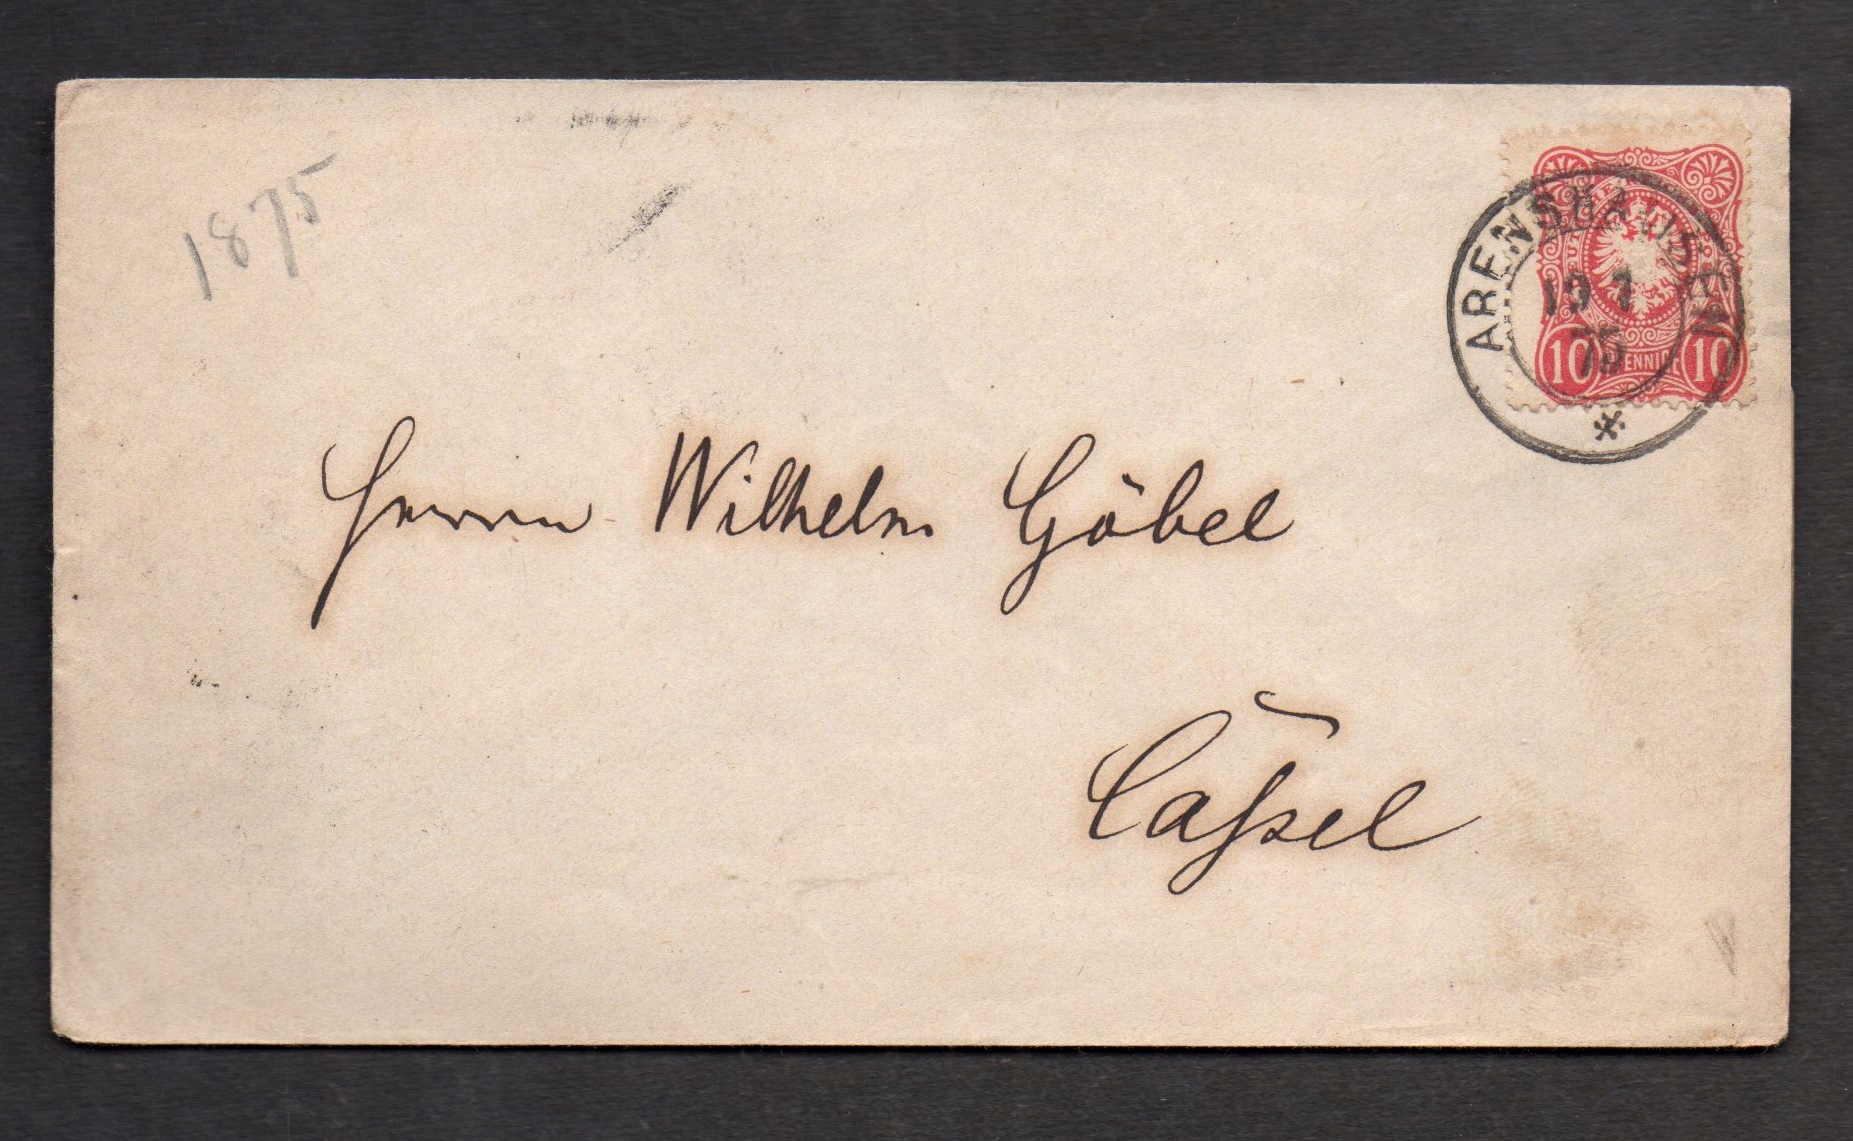 1875
ARENSHAUSEN
19 7
75
*
10 PFENNIGE 10
Herrn Wilhelm Göbel
Caſsel